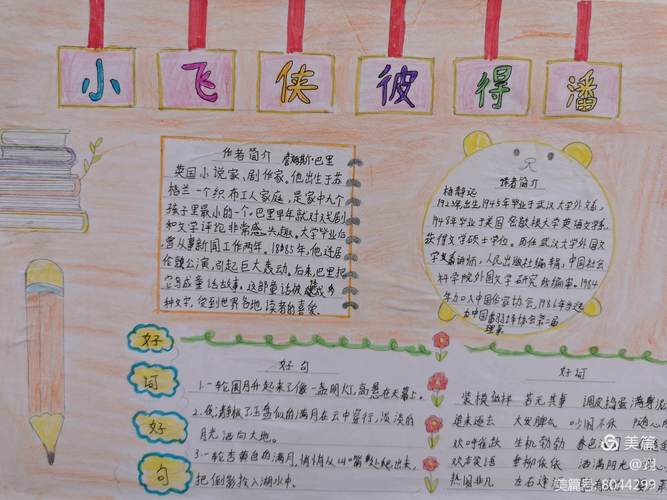 小飞侠彼得潘
作者简介 詹姆斯·巴里
英国小说家、剧作家。他出生于苏
格兰一个织布工人家庭，是家中九个
孩子里最小的一个。巴里早年就对戏剧
和文学评论非常感兴趣。大学毕业后，
曾从事新闻工作两年。1885年，他迁居
伦敦
引起巨大轰动。后来，巴里把
它写成童话故事。这部童话被
种文字，受到世界各地读者的喜爱。
译者简介
杨静远
1923年出生，1945年毕业于武汉大学外文系，
1948年毕业于美国密歇根大学英语文学系，
获得文学硕士学位。历任武汉大学外国文
学
讲师，人民出版社编辑，中国社会
科学院外国文学研究
编审。1984
年加入中国作家协会，1986年当选
为中国翻译工作者协会第二届
理事
好
词
好
句
好句
1.一轮圆月升起来了，像一盏明灯，高悬在天幕上。
2.夜，静极了，玉盘似的满月在云中穿行，淡淡的
月光洒向大地。
3.一轮杏黄色的满月，悄悄从山嘴处爬出来，
把倒影投入湖水中。
好词
装模做样 若无其事 调皮捣蛋
迎来送去 大发脾气
欢呼雀跃 生机勃勃
欢声笑语 垂柳依依 洒满阳光
热闹非凡
美篇
美篇号:8044299